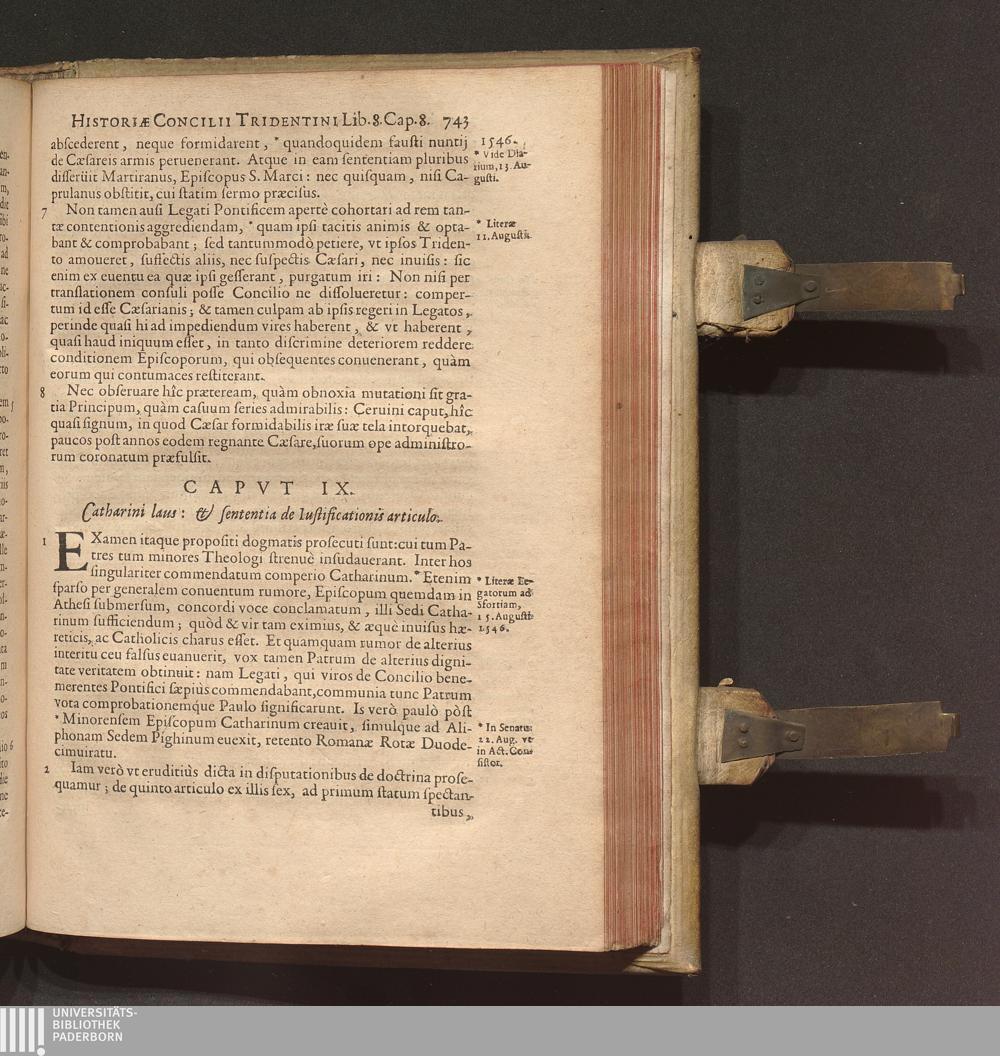 HISTORIÆ CONCILII TRIDENTINI Lib. 8. Cap. 8. 743
abſcederent, neque formidarent, * quandoquidem fauſti nuntij
de Cæſareis armis peruenerant. Atque in eam ſententiam pluribus
diſſerüit Martiranus, Epiſcopus S. Marci: nec quiſquam, niſi Ca-
prulanus obſtitit, cui ſtatim ſermo præciſus.
1546.
* Vide Dia-
rium, 13. Au-
guſti.
7 Non tamen auſi Legati Pontificem apertè cohortari ad rem tan-
tæ contentionis aggrediendam, * quam ipſi tacitis animis & opta-
bant & comprobabant; ſed tantummodò petiere, vt ipſos Triden-
to amoueret, ſuffectis aliis, nec ſuſpectis Cæſari, nec inuiſis: ſic
enim ex euentu ea quæ ipſi geſſerant, purgatum iri: Non niſi per
tranſlationem conſuli poſſe Concilio ne diſſolueretur: comper-
tum id eſſe Cæſarianis; & tamen culpam ab ipſis regeri in Legatos,
perinde quaſi hi ad impediendum vires haberent, & vt haberent,
quaſi haud iniquum eſſet, in tanto diſcrimine deteriorem reddere
conditionem Epiſcoporum, qui obſequentes conuenerant, quàm
eorum qui contumaces reſtiterant.
* Literæ
11. Auguſti.
8 Nec obſeruare hîc præteream, quàm obnoxia mutationi ſit gra-
tia Principum, quàm caſuum ſeries admirabilis: Ceruini caput, hîc
quaſi ſignum, in quod Cæſar formidabilis iræ ſuæ tela intorquebat,
paucos poſt annos eodem regnante Cæſare, ſuorum ope adminiſtro-
rum coronatum præfulſit.
CAPVT IX.
Catharini laus: & ſententia de Iuſtificationis articulo.
1 EXamen itaque propoſiti dogmatis proſecuti ſunt: cui tum Pa-
tres tum minores Theologi ſtrenuè inſudauerant. Inter hos
ſingulariter commendatum comperio Catharinum. * Etenim
ſparſo per generalem conuentum rumore, Epiſcopum quemdam in
Atheſi ſubmerſum, concordi voce conclamatum, illi Sedi Catha-
rinum ſufficiendum; quòd & vir tam eximius, & æquè inuiſus hæ-
reticis, ac Catholicis charus eſſet. Et quamquam rumor de alterius
interitu ceu falſus euanuerit, vox tamen Patrum de alterius digni-
tate veritatem obtinuit: nam Legati, qui viros de Concilio bene-
merentes Pontifici ſæpiùs commendabant, communia tunc Patrum
vota comprobationemque Paulo ſignificarunt. Is verò paulò pòſt
* Minorenſem Epiſcopum Catharinum creauit, ſimulque ad Ali-
phonam Sedem Pighinum euexit, retento Romanæ Rotæ Duode-
cimuiratu.
* Literæ Le-
gatorum ad
Sfortiam,
15. Auguſti
1546.
* In Senatu
22. Aug. vt
in Act. Con-
ſiſtor.
2 Iam verò vt eruditiùs dicta in diſputationibus de doctrina proſe-
quamur; de quinto articulo ex illis ſex, ad primum ſtatum ſpectan-
tibus,
UNIVERSITÄTS-
BIBLIOTHEK
PADERBORN